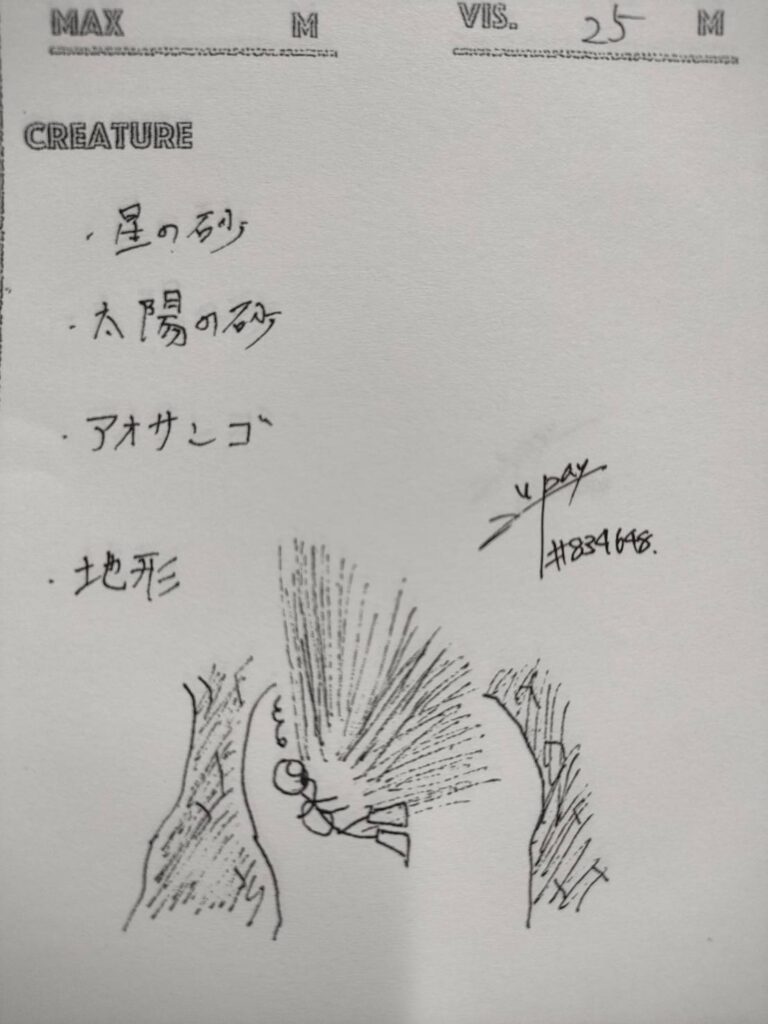 MAX M VIS. 25 M
CREATURE
・星の砂
・太陽の砂
・アオサンゴ
#834648.
・地形